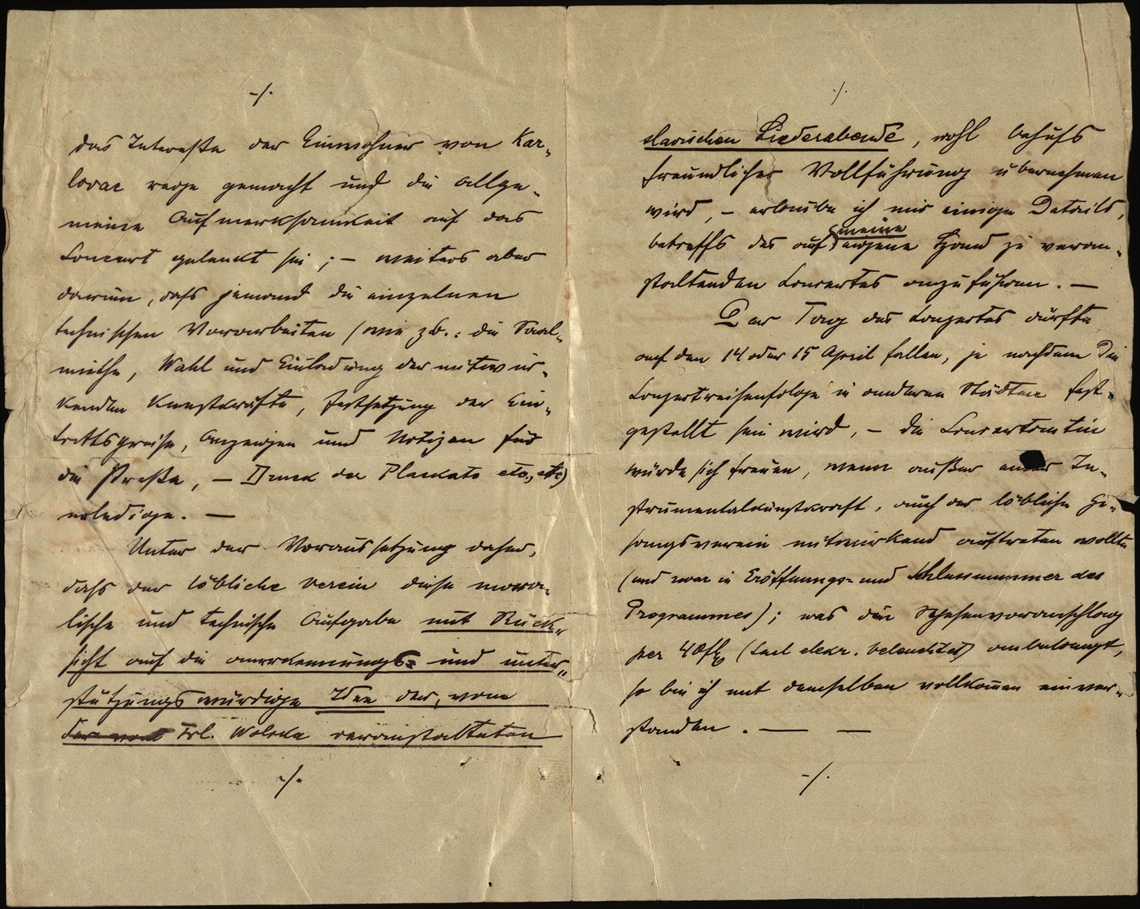 -/.
das Interesse der Einwohner von Kar-
lovac rege gemacht und die allge-
meine Aufmerksamkeit auf das
Concert gelenkt sei ; – weiters aber
darum, dass jemand die einzelnen
technischen Vorarbeiten (wie zb.: die Saal-
miethe, Wahl und Einladung der mitwir-
kenden Kunstkräfte, Festsetzung der Ein-
trittspreise, Anzeigen und Notizen für
die Presse, – Druck der Placate etc, etc)
erledige. —
Unter der Voraussetzung daher,
dass der löbliche Verein diese mora-
lische und technische Aufgabe mit Rück-
sicht auf die anerkennungs- und unter-
stützungswürdige Idee der, vom
Frl. Woleda veranstalteten
-/.
-/.
slavischen Liederabende, wohl behufs
freundlicher Vollführung übernehmen
wird, – erlaube ich mir einige Details,
betreffs des auf meine eigene Hand zu veran-
staltenden Concertes anzuführen. —
Der Tag des Conzertes dürfte
auf den 14 oder 15 April fallen, je nachdem die
Conzertreihenfolge in anderen Städten fest-
gestellt sein wird, – die Concertantin
würde sich freuen, wenn außer einer In-
strumentalkunstkraft, auch der löbliche Ge-
sangsverein mitwirkend auftreten wollte
(und zwar in Eröffnungs- und Schlussnummer des
Programmes) ; was den Spesenvoranschlag
per 40 fl (incl. elekr. Beleuchtung) anbelangt,
so bin ich mit demselben vollkommen einver-
standen . — —
-/.